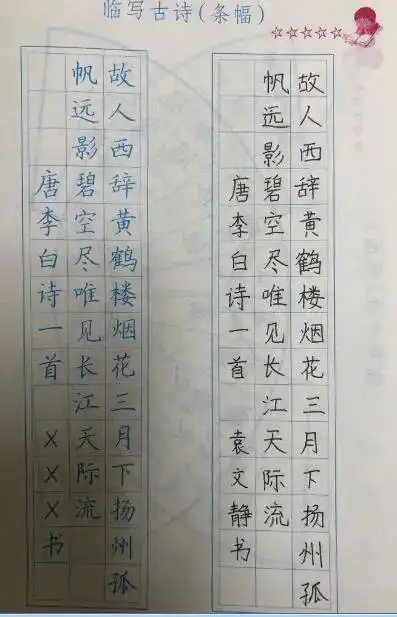 临写古诗(条幅)
故人西辞黄鹤楼烟花三月下扬州孤
帆远影碧空尽唯见长江天际流
唐李白诗一首 XXX书
故人西辞黄鹤楼烟花三月下扬州孤
帆远影碧空尽唯见长江天际流
唐李白诗一首 袁文静书